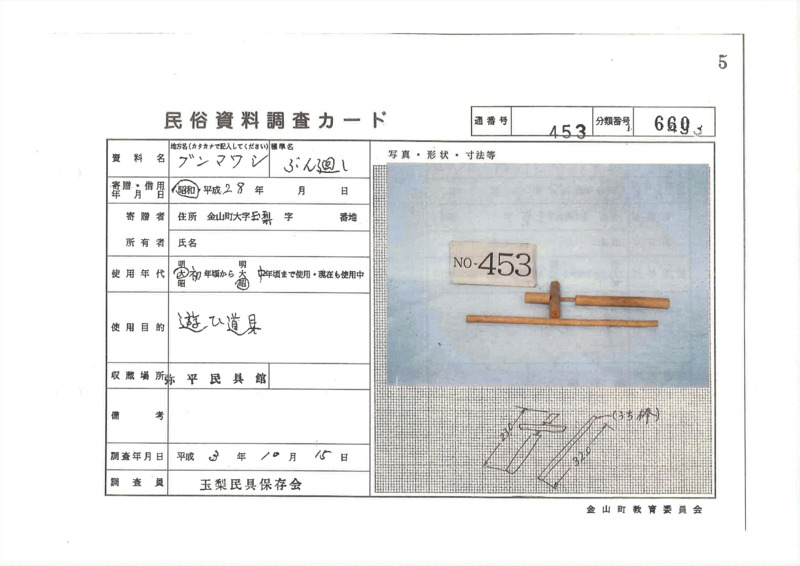 5
民俗資料調査カード
通番号 453 分類番号
資料名 地方名(カタカナで記入してください) ブンマワシ 標準名 ぶん廻し
寄贈・借用年月日 昭和・平成 28 年 月 日
寄贈者 住所 金山町大字玉梨 字 番地
所有者 氏名
使用年代 明大昭 初年頃から 明大昭 中年頃まで使用・現在も使用中
使用目的 遊び道具
収蔵場所 弥平民具館
備考
調査年月日 平成 3 年 10 月 15 日
調査員 玉梨民具保存会
写真・形状・寸法等
NO-453
(うち棒)
23.0
32.0
金山町教育委員会